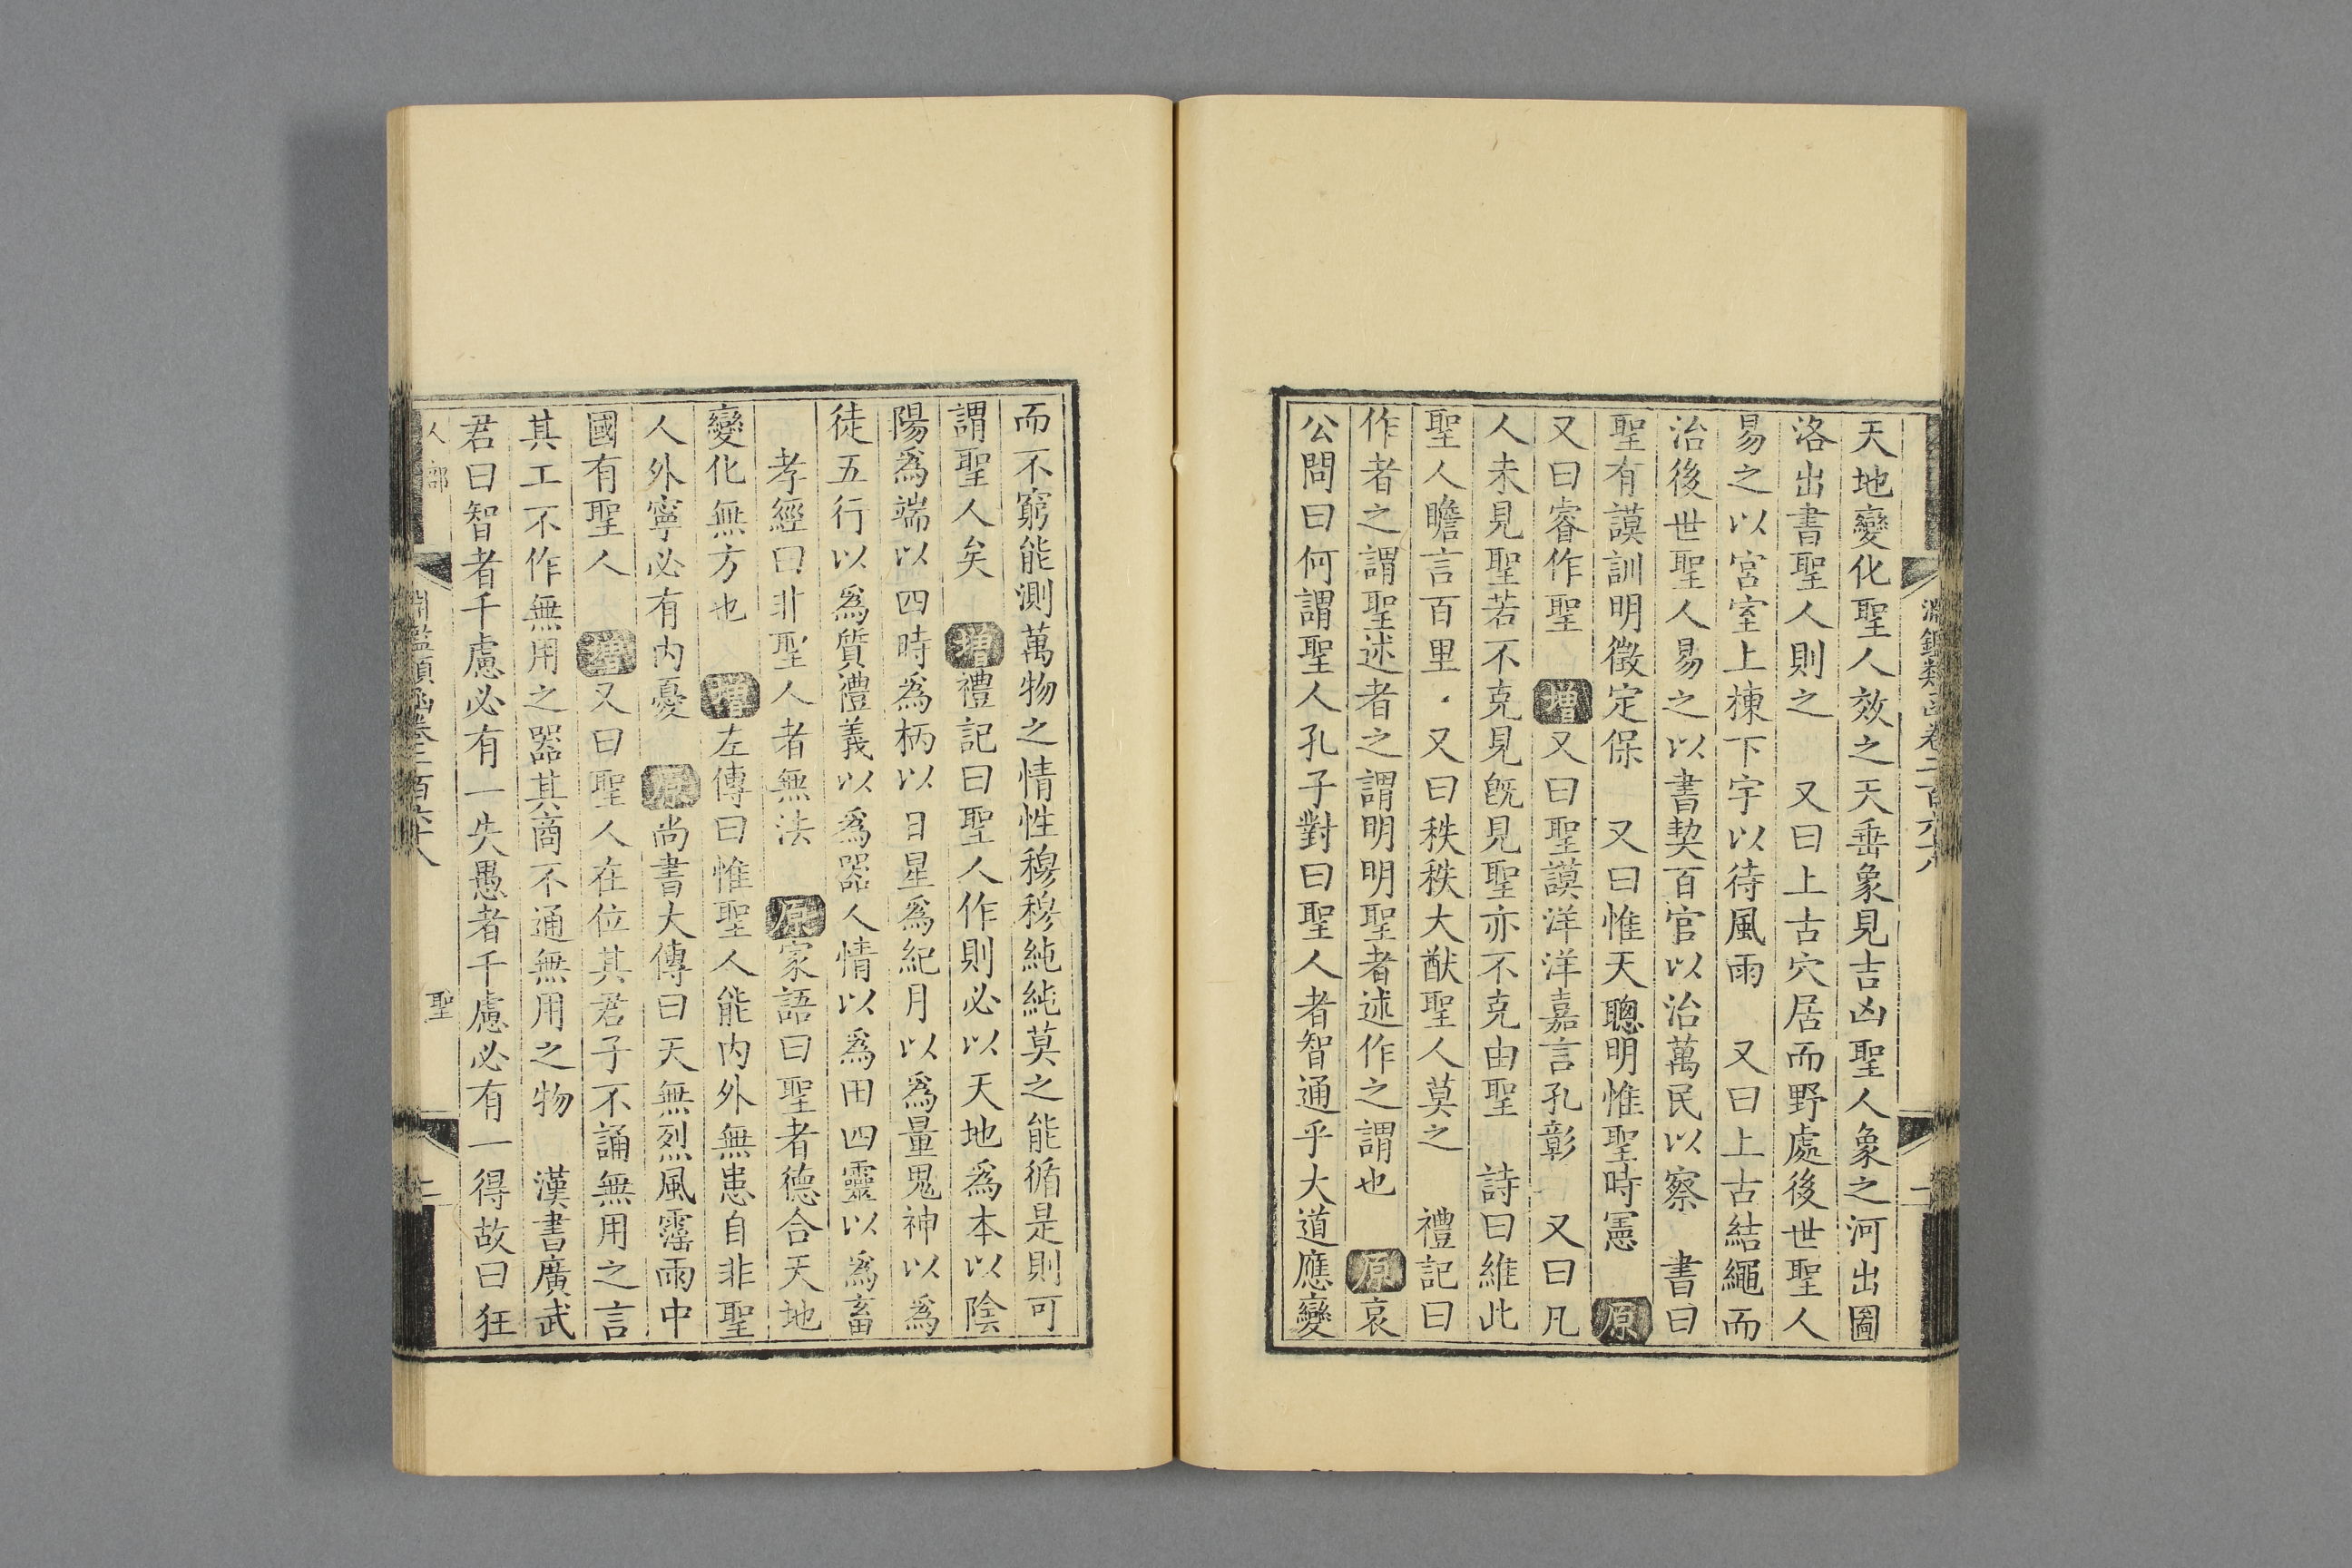 天地變化聖人效之天垂象見吉凶聖人象之河出圖
洛出書聖人則之　又曰上古穴居而野處後世聖人
易之以宮室上棟下宇以待風雨　又曰上古結繩而
治後世聖人易之以書契百官以治萬民以察　書曰
聖有謨訓明徵定保　又曰惟天聰明惟聖時憲　原
又曰睿作聖　增又曰聖謨洋洋嘉言孔彰　又曰凡
人未見聖若不克見旣見聖亦不克由聖　詩曰維此
聖人瞻言百里　又曰秩秩大猷聖人莫之　禮記曰
作者之謂聖述者之謂明明聖者述作之謂也　原哀
公問曰何謂聖人孔子對曰聖人者智通乎大道應變
而不窮能測萬物之情性穆穆純純莫之能循是則可
謂聖人矣　增禮記曰聖人作則必以天地爲本以陰
陽爲端以四時爲柄以日星爲紀月以爲量鬼神以爲
徒五行以爲質禮義以爲器人情以爲田四靈以爲畜
孝經曰非聖人者無法　原家語曰聖者德合天地
變化無方也　增左傳曰惟聖人能內外無患自非聖
人外寧必有內憂　原尚書大傳曰天無烈風霪雨中
國有聖人　增又曰聖人在位其君子不誦無用之言
其工不作無用之器其商不通無用之物　漢書廣武
君曰智者千慮必有一失愚者千慮必有一得故曰狂
人部
淵鑑類函卷二百六十八
聖
二